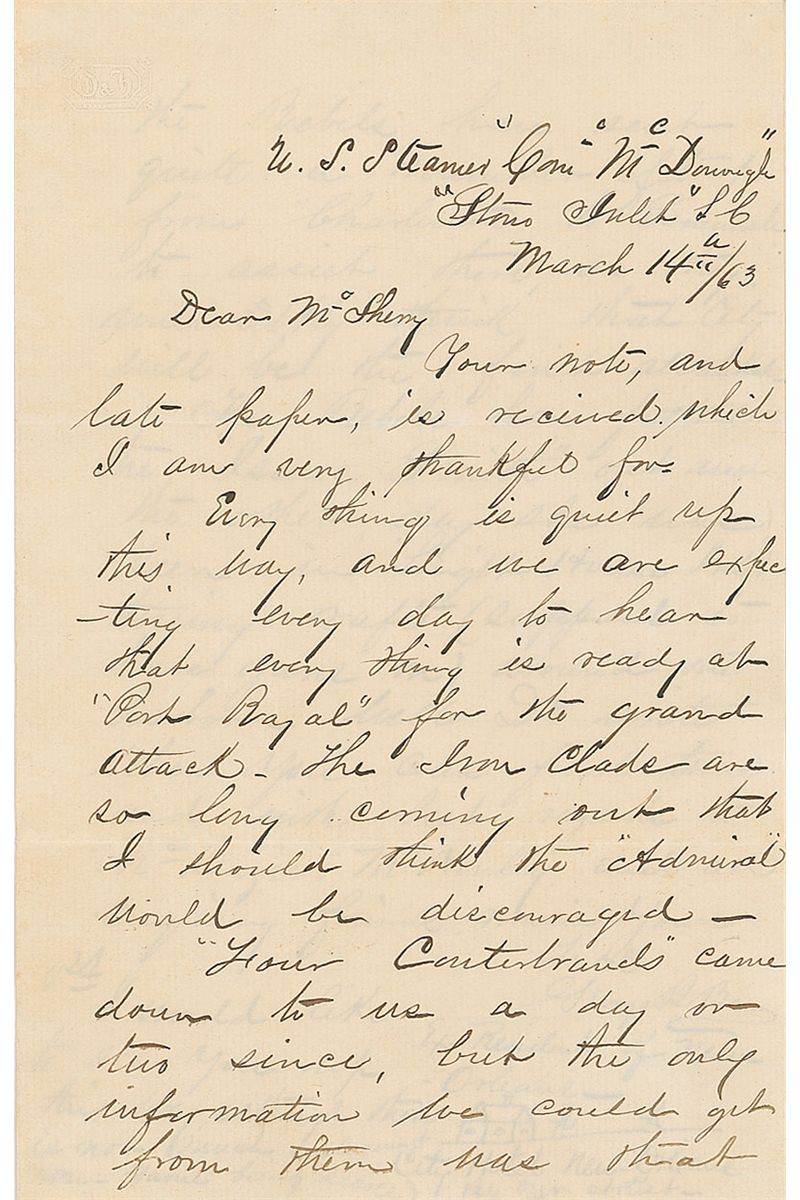 U. S. Steamer "Com" McDonough"
"Stono Inlet" S C
March 14th/63
Dear McSherry
Your note, and
late paper, is received. which
I am very thankful for-
Every thing is quiet up
this way, and we are expec
-ting every day to hear
that every thing is ready at
"Port Royal" for the grand
attack - The Iron Clads are
so long coming out that
I should think the "Admiral"
would be discouraged -
"Four Conterbrands" came
down to us a day or
two since, but the only
information we could get
from them was that